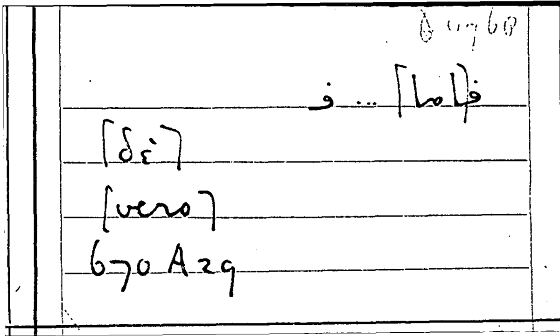 ف[اما] ... ف
[δέ]
[vero]
670 A29